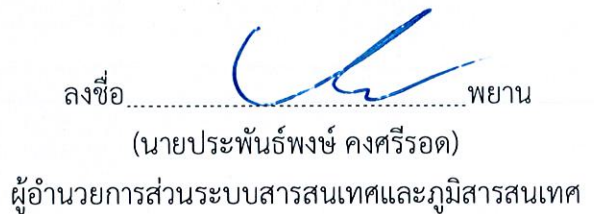 ลงชื่อ........................................พยาน
(นายประพันธ์พงษ์ คงศรีรอด)
ผู้อำนวยการส่วนระบบสารสนเทศและภูมิสารสนเทศ